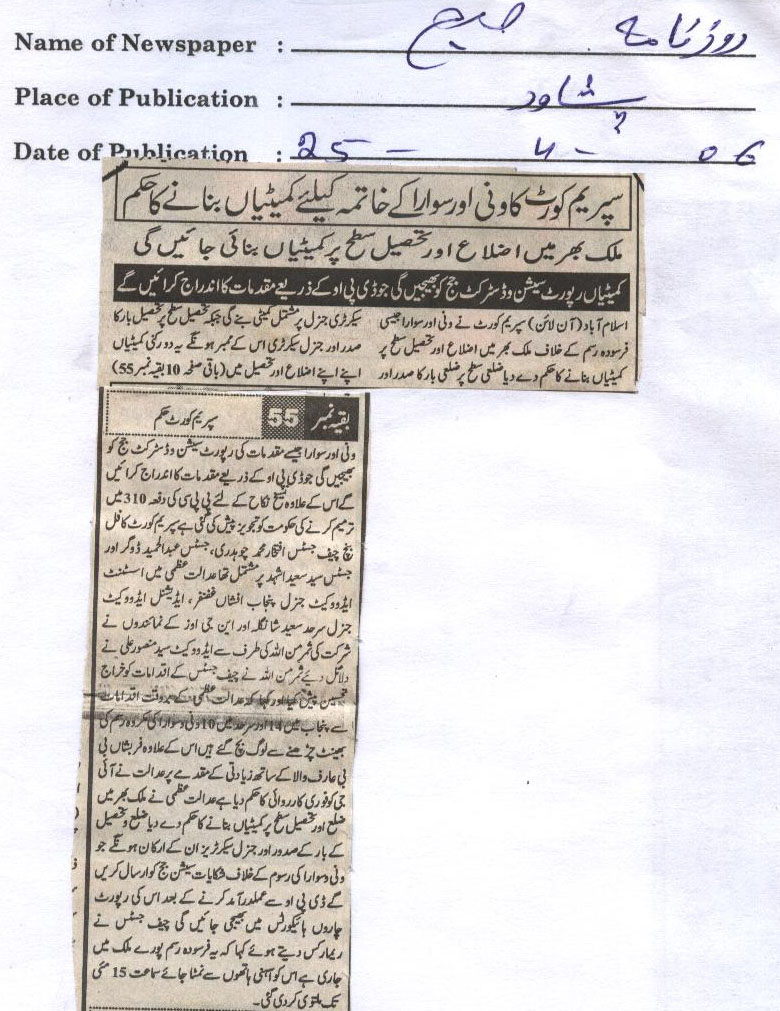 Name of Newspaper : روزنامہ صبح
Place of Publication : پشاور
Date of Publication : 25 - 4 - 06
سپریم کورٹ کا ونی اور سوارا کے خاتمہ کیلئے کمیٹیاں بنانے کا حکم
ملک بھر میں اضلاع اور تحصیل سطح پر کمیٹیاں بنائی جائیں گی
کمیٹیاں رپورٹ سیشن و ڈسٹرکٹ جج کو بھیجیں گی جو ڈی پی او کے ذریعے مقدمات کا اندراج کرائیں گے
اسلام آباد (آن لائن) سپریم کورٹ نے ونی اور سوارا جیسی
فرسودہ رسم کے خلاف ملک بھر میں اضلاع اور تحصیل سطح پر
کمیٹیاں بنانے کا حکم دے دیا ضلعی سطح پر ضلعی بار کا صدر اور
سیکرٹری جنرل پر مشتمل کمیٹی بنے گی جبکہ تحصیل سطح پر تحصیل بار کا
صدر اور جنرل سیکرٹری اس کے ممبر ہونگے یہ دو رکنی کمیٹیاں
اپنے اپنے اضلاع اور تحصیل میں (باقی صفحہ 10 بقیہ نمبر 55)
بقیہ نمبر 55 سپریم کورٹ حکم
ونی اور سوارا جیسے مقدمات کی رپورٹ سیشن و ڈسٹرکٹ جج کو
بھیجیں گی جو ڈی پی او کے ذریعے مقدمات کا اندراج کرائیں
گے اس کے علاوہ تنسیخ نکاح کے لئے پی پی سی کی دفعہ 310 میں
ترمیم کرنے کی حکومت کو تجویز پیش کی گئی ہے سپریم کورٹ کا فل
بنچ چیف جسٹس افتخار محمد چوہدری، جسٹس عبدالحمید ڈوگر اور
جسٹس سید سعید اشہد پر مشتمل تھا عدالت عظمیٰ میں اسسٹنٹ
ایڈووکیٹ جنرل پنجاب افشاں غضنفر، ایڈیشنل ایڈووکیٹ
جنرل سرحد سعید شانگلہ اور این جی اوز کے نمائندوں نے
شرکت کی ثمر من اللہ کی طرف سے ایڈووکیٹ سید منصور علی نے
دلائل دیئے ثمر من اللہ نے چیف جسٹس کے اقدامات کو خراج
تحسین پیش کیا اور کہا کہ عدالت عظمیٰ کے بروقت اقدامات
سے پنجاب میں 14 اور سرحد میں 10 ونی و سوارا کی مکروہ رسم کی
بھینٹ چڑھنے سے لوگ بچ گئے ہیں اس کے علاوہ فریشاں بی
بی عارف والا کے ساتھ زیادتی کے مقدمے پر عدالت نے آئی
جی کو فوری کارروائی کا حکم دیا ہے عدالت عظمیٰ نے ملک بھر میں
ضلع اور تحصیل سطح پر کمیٹیاں بنانے کا حکم دے دیا ضلع و تحصیل
کے بار کے صدور اور جنرل سیکرٹریز ان کے ارکان ہونگے جو
ونی و سوارا کی رسوم کے خلاف شکایات سیشن جج کو ارسال کریں
گے ڈی پی او سے عملدرآمد کرنے کے بعد اس کی رپورٹ
چاروں ہائیکورٹس میں بھیجی جائیں گی چیف جسٹس نے
ریمارکس دیتے ہوئے کہا کہ یہ فرسودہ رسم پورے ملک میں
جاری ہے اس کو آہنی ہاتھوں سے نمٹا جائے سماعت 15 مئی
تک ملتوی کر دی گئی۔